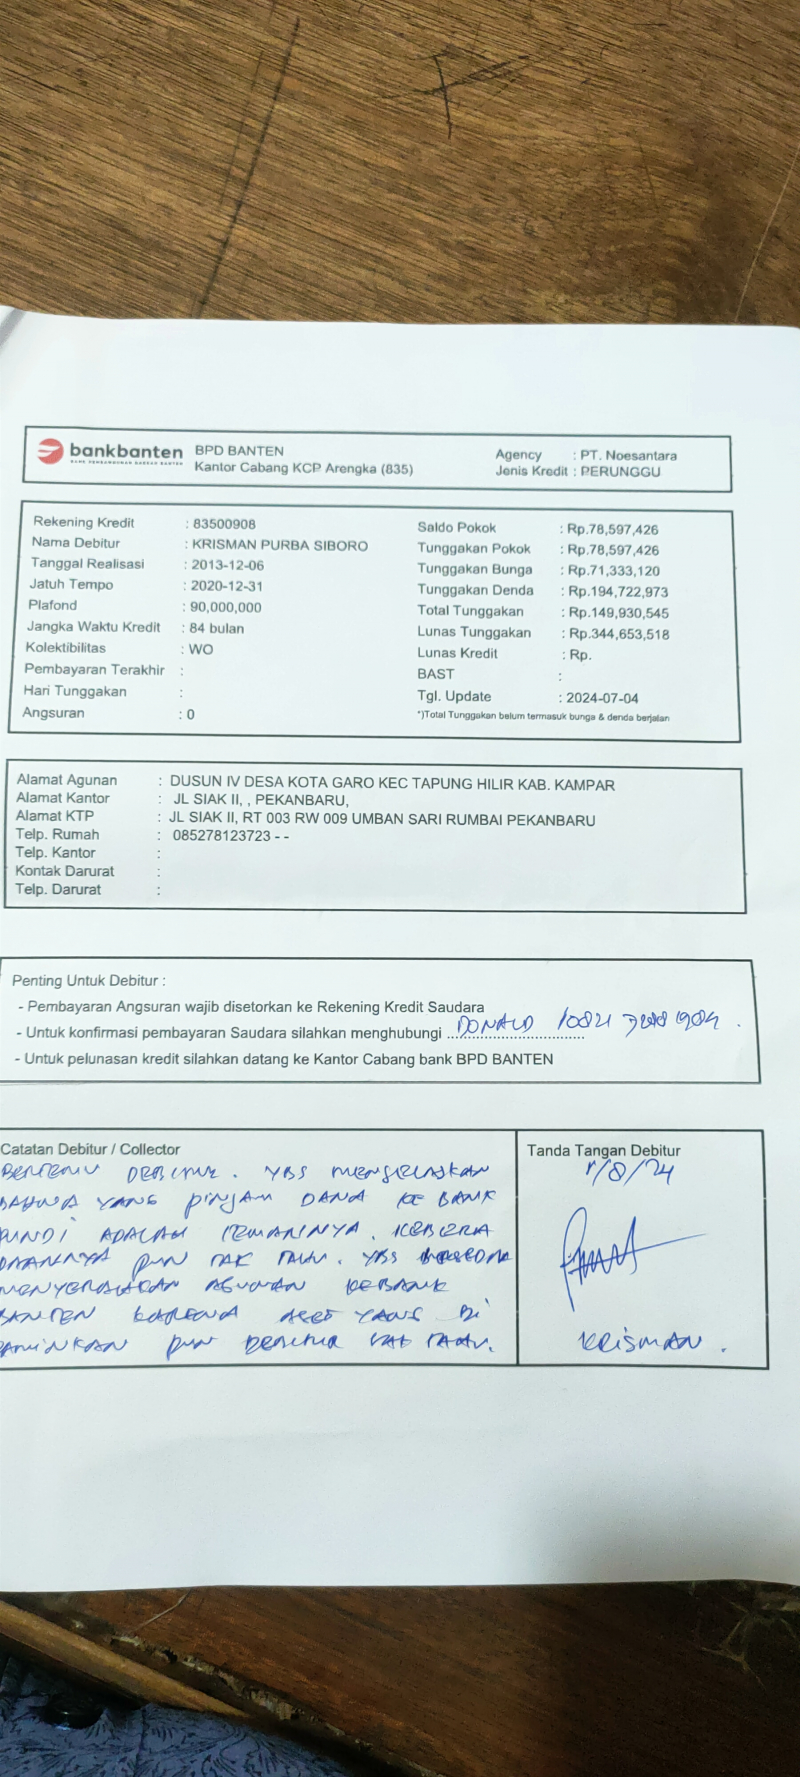 bankbanten
BANK PEMBANGUNAN DAERAH BANTEN
BPD BANTEN
Kantor Cabang KCP Arengka (835)
Agency : PT. Noesantara
Jenis Kredit : PERUNGGU
Rekening Kredit : 83500908
Nama Debitur : KRISMAN PURBA SIBORO
Tanggal Realisasi : 2013-12-06
Jatuh Tempo : 2020-12-31
Plafond : 90,000,000
Jangka Waktu Kredit : 84 bulan
Kolektibilitas : WO
Pembayaran Terakhir :
Hari Tunggakan :
Angsuran : 0
Saldo Pokok : Rp.78,597,426
Tunggakan Pokok : Rp.78,597,426
Tunggakan Bunga : Rp.71,333,120
Tunggakan Denda : Rp.194,722,973
Total Tunggakan : Rp.149,930,545
Lunas Tunggakan : Rp.344,653,518
Lunas Kredit : Rp.
BAST :
Tgl. Update : 2024-07-04
*)Total Tunggakan belum termasuk bunga & denda berjalan
Alamat Agunan : DUSUN IV DESA KOTA GARO KEC TAPUNG HILIR KAB. KAMPAR
Alamat Kantor : JL SIAK II, , PEKANBARU,
Alamat KTP : JL SIAK II, RT 003 RW 009 UMBAN SARI RUMBAI PEKANBARU
Telp. Rumah : 085278123723 - -
Telp. Kantor :
Kontak Darurat :
Telp. Darurat :
Penting Untuk Debitur :
- Pembayaran Angsuran wajib disetorkan ke Rekening Kredit Saudara
- Untuk konfirmasi pembayaran Saudara silahkan menghubungi DONALD
- Untuk pelunasan kredit silahkan datang ke Kantor Cabang bank BPD BANTEN
Catatan Debitur / Collector
BERTEMU DEBITUR. YBS MENJELASKAN
BAHWA YANG PINJAM DANA KE BANK
PUNDI ADALAH TEMANNYA. KEBERA
DAANNYA PUN TAK TAHU. YBS
MENYERAHKAN AGUNAN KEBANK
BANTEN KARENA ASET YANG DI
JAMINKAN PUN DEBITUR TAK TAHU.
Tanda Tangan Debitur
/8/24
KRISMAN.